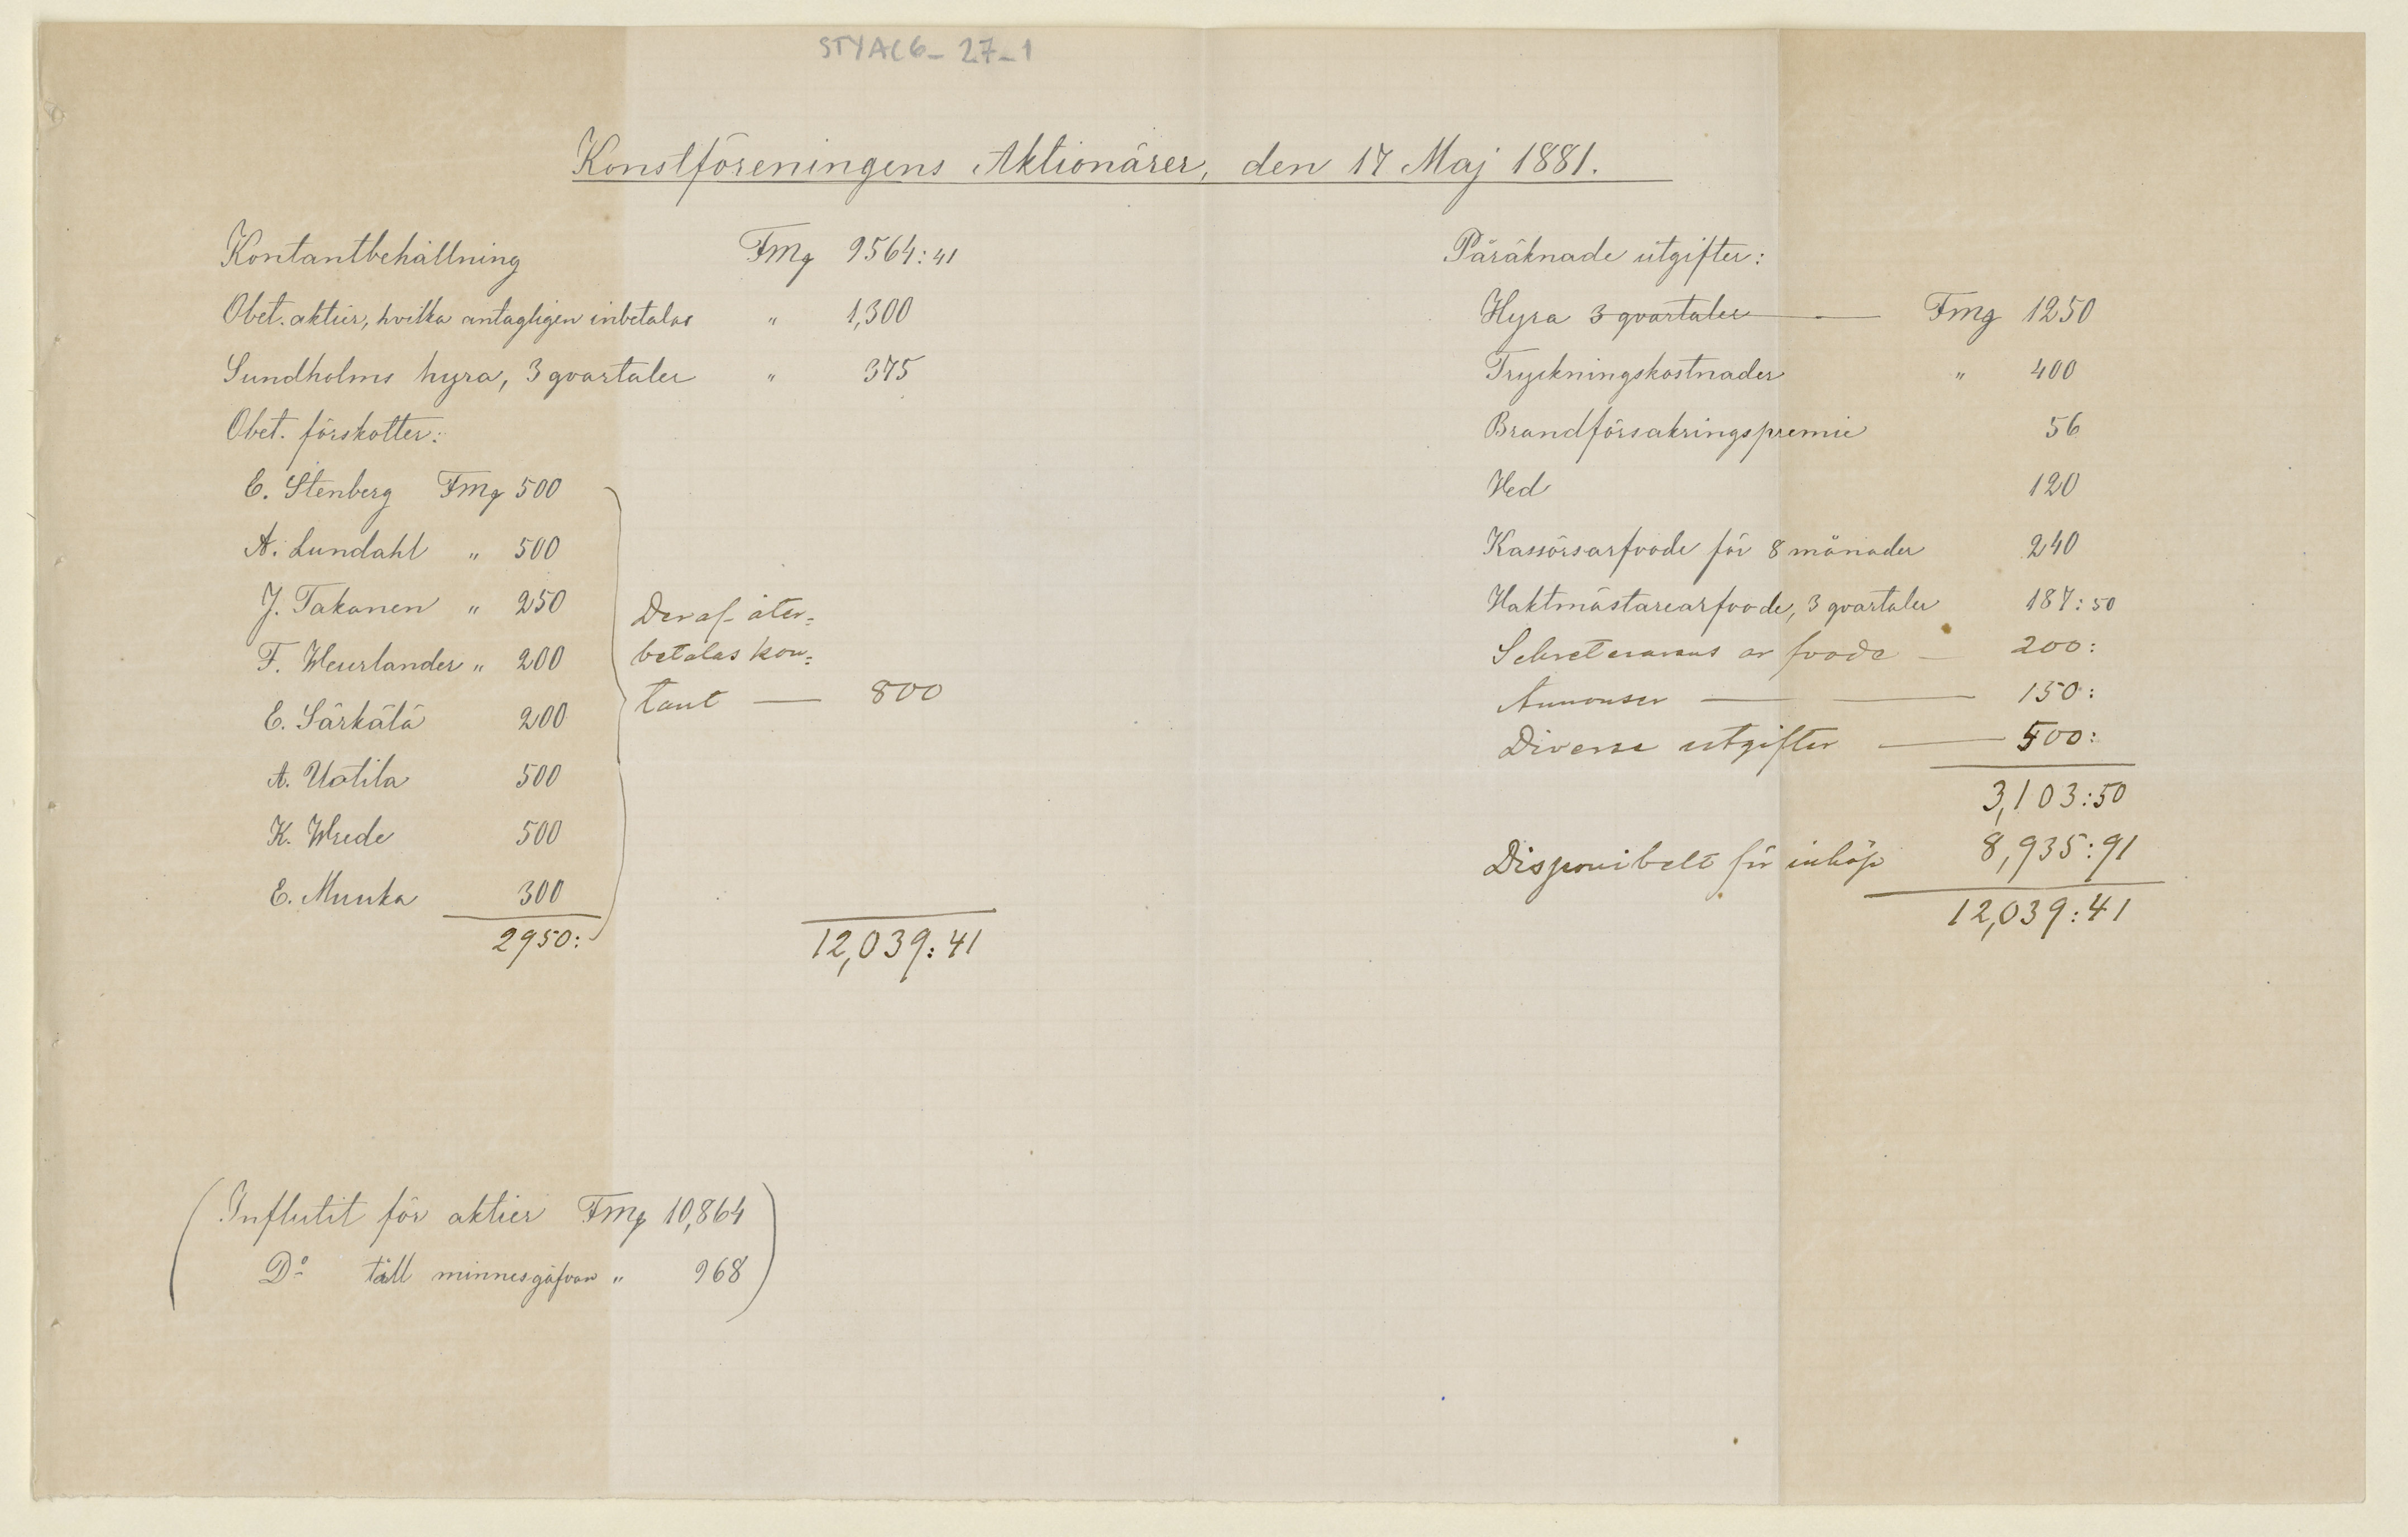 STYAC6_27_1
Konstföreningens Aktionärer, den 17 Maj 1881.
Kontantbehållning Fmg 9564:41
Obet. aktier, hvilka antagligen inbetalas " 1,300
Sundholms hyra, 3 qvartaler " 375
Obet. förskotter:
E. Stenberg Fmg 500
A. Lundahl " 500
J. Takanen " 250
F. Weurlander " 200
E. Särkälä 200
A. Uotila 500
K. Wrede 500
E. Munka 300
2950:
Deraf åter=
betalas kon=
tant — 800
12,039:41
(Influtit för aktier Fmg 10,864
Do till minnesgåfvan " 968)
Påräknade utgifter:
Hyra 3 qvartaler — Fmg 1250
Tryckningskostnader " 400
Brandförsäkringspremie 56
Ved 120
Kassörsarfvode för 8 månader 240
Vaktmästarearfvode, 3 qvartaler 187:50
Sekreterarens arfvode — 200:
Annonser — — 150:
Diverse utgifter — 500:
3,103:50
Disponibelt för inköp 8,935:91
12,039:41